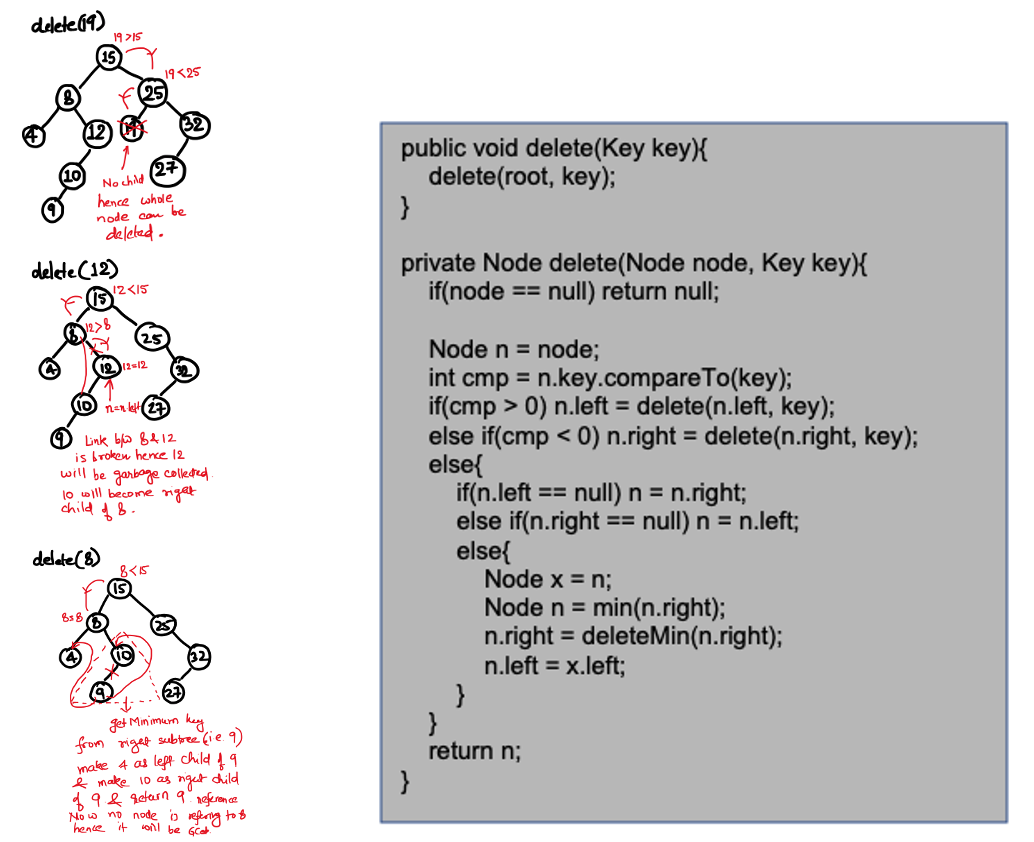 delete(19)
19>15
15
19<25
8
25
4
12
19
32
10
27
9
No child
hence whole
node can be
deleted.
delete(12)
12<15
15
8
12>8
25
4
12
12=12
32
10
n=n.left
27
9
Link b/w 8 & 12
is broken hence 12
will be garbage collected.
10 will become right
child of 8.
delete(8)
8<15
15
8=8
8
25
4
10
32
9
27
get Minimum key
from right subtree (i.e 9)
make 4 as left child of 9
& make 10 as right child
of 9 & return 9 reference
Now no node is refering to 8
hence it will be GCed.
public void delete(Key key){
delete(root, key);
}
private Node delete(Node node, Key key){
if(node == null) return null;
Node n = node;
int cmp = n.key.compareTo(key);
if(cmp > 0) n.left = delete(n.left, key);
else if(cmp < 0) n.right = delete(n.right, key);
else{
if(n.left == null) n = n.right;
else if(n.right == null) n = n.left;
else{
Node x = n;
Node n = min(n.right);
n.right = deleteMin(n.right);
n.left = x.left;
}
}
return n;
}